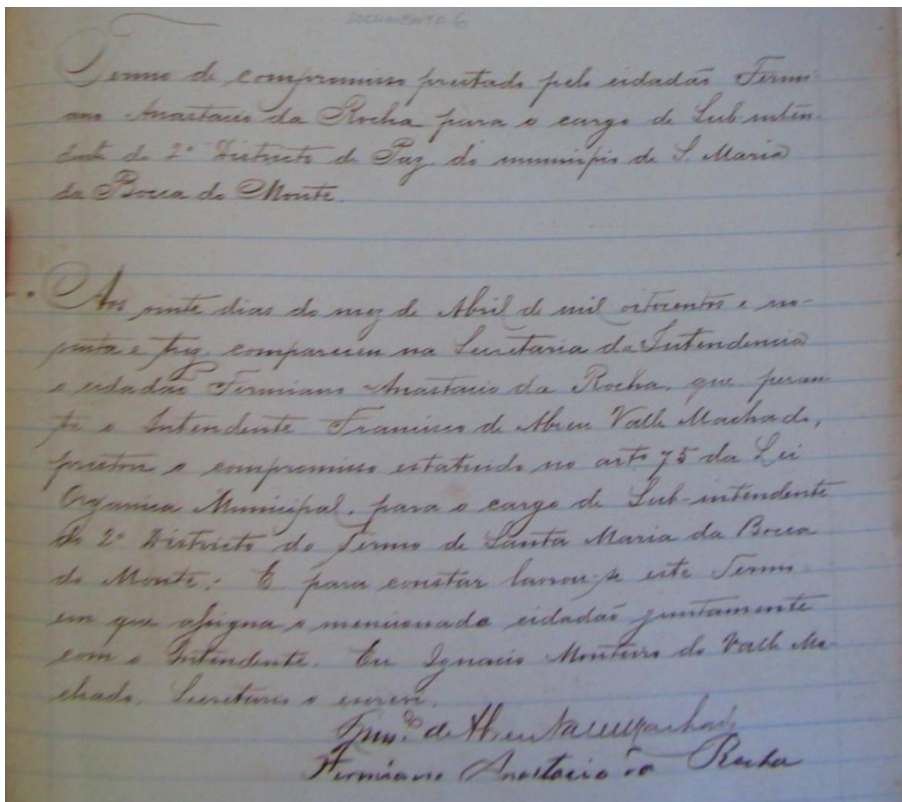 DOCUMENTO 6
Termo de compromisso prestado pelo cidadão Fermi-
ano Anastacio da Rocha para o cargo de Sub-inten-
dente do 2º Districto de Paz do municipio de S. Maria
da Bocca do Monte.
Aos vinte dias do mez de Abril de mil oitocentos e no-
venta e trez, compareceu na Secretaria da Intendencia
o cidadão Fermiano Anastacio da Rocha, que peran-
te o Intendente Francisco de Abreu Valle Machado,
prestou o compromisso estatuido no artº 75 da Lei
Organica Municipal, para o cargo de Sub-intendente
do 2º Districto do Termo de Santa Maria da Bocca
do Monte; E para constar lavrou-se este Termo
em que assigna o mencionado cidadão juntamente
com o Intendente. Eu Ignacio Monteiro do Valle Ma-
chado, Secretario o escrevi.
Franº de Abreu Valle Machado
Fermiano Anastacio da Rocha